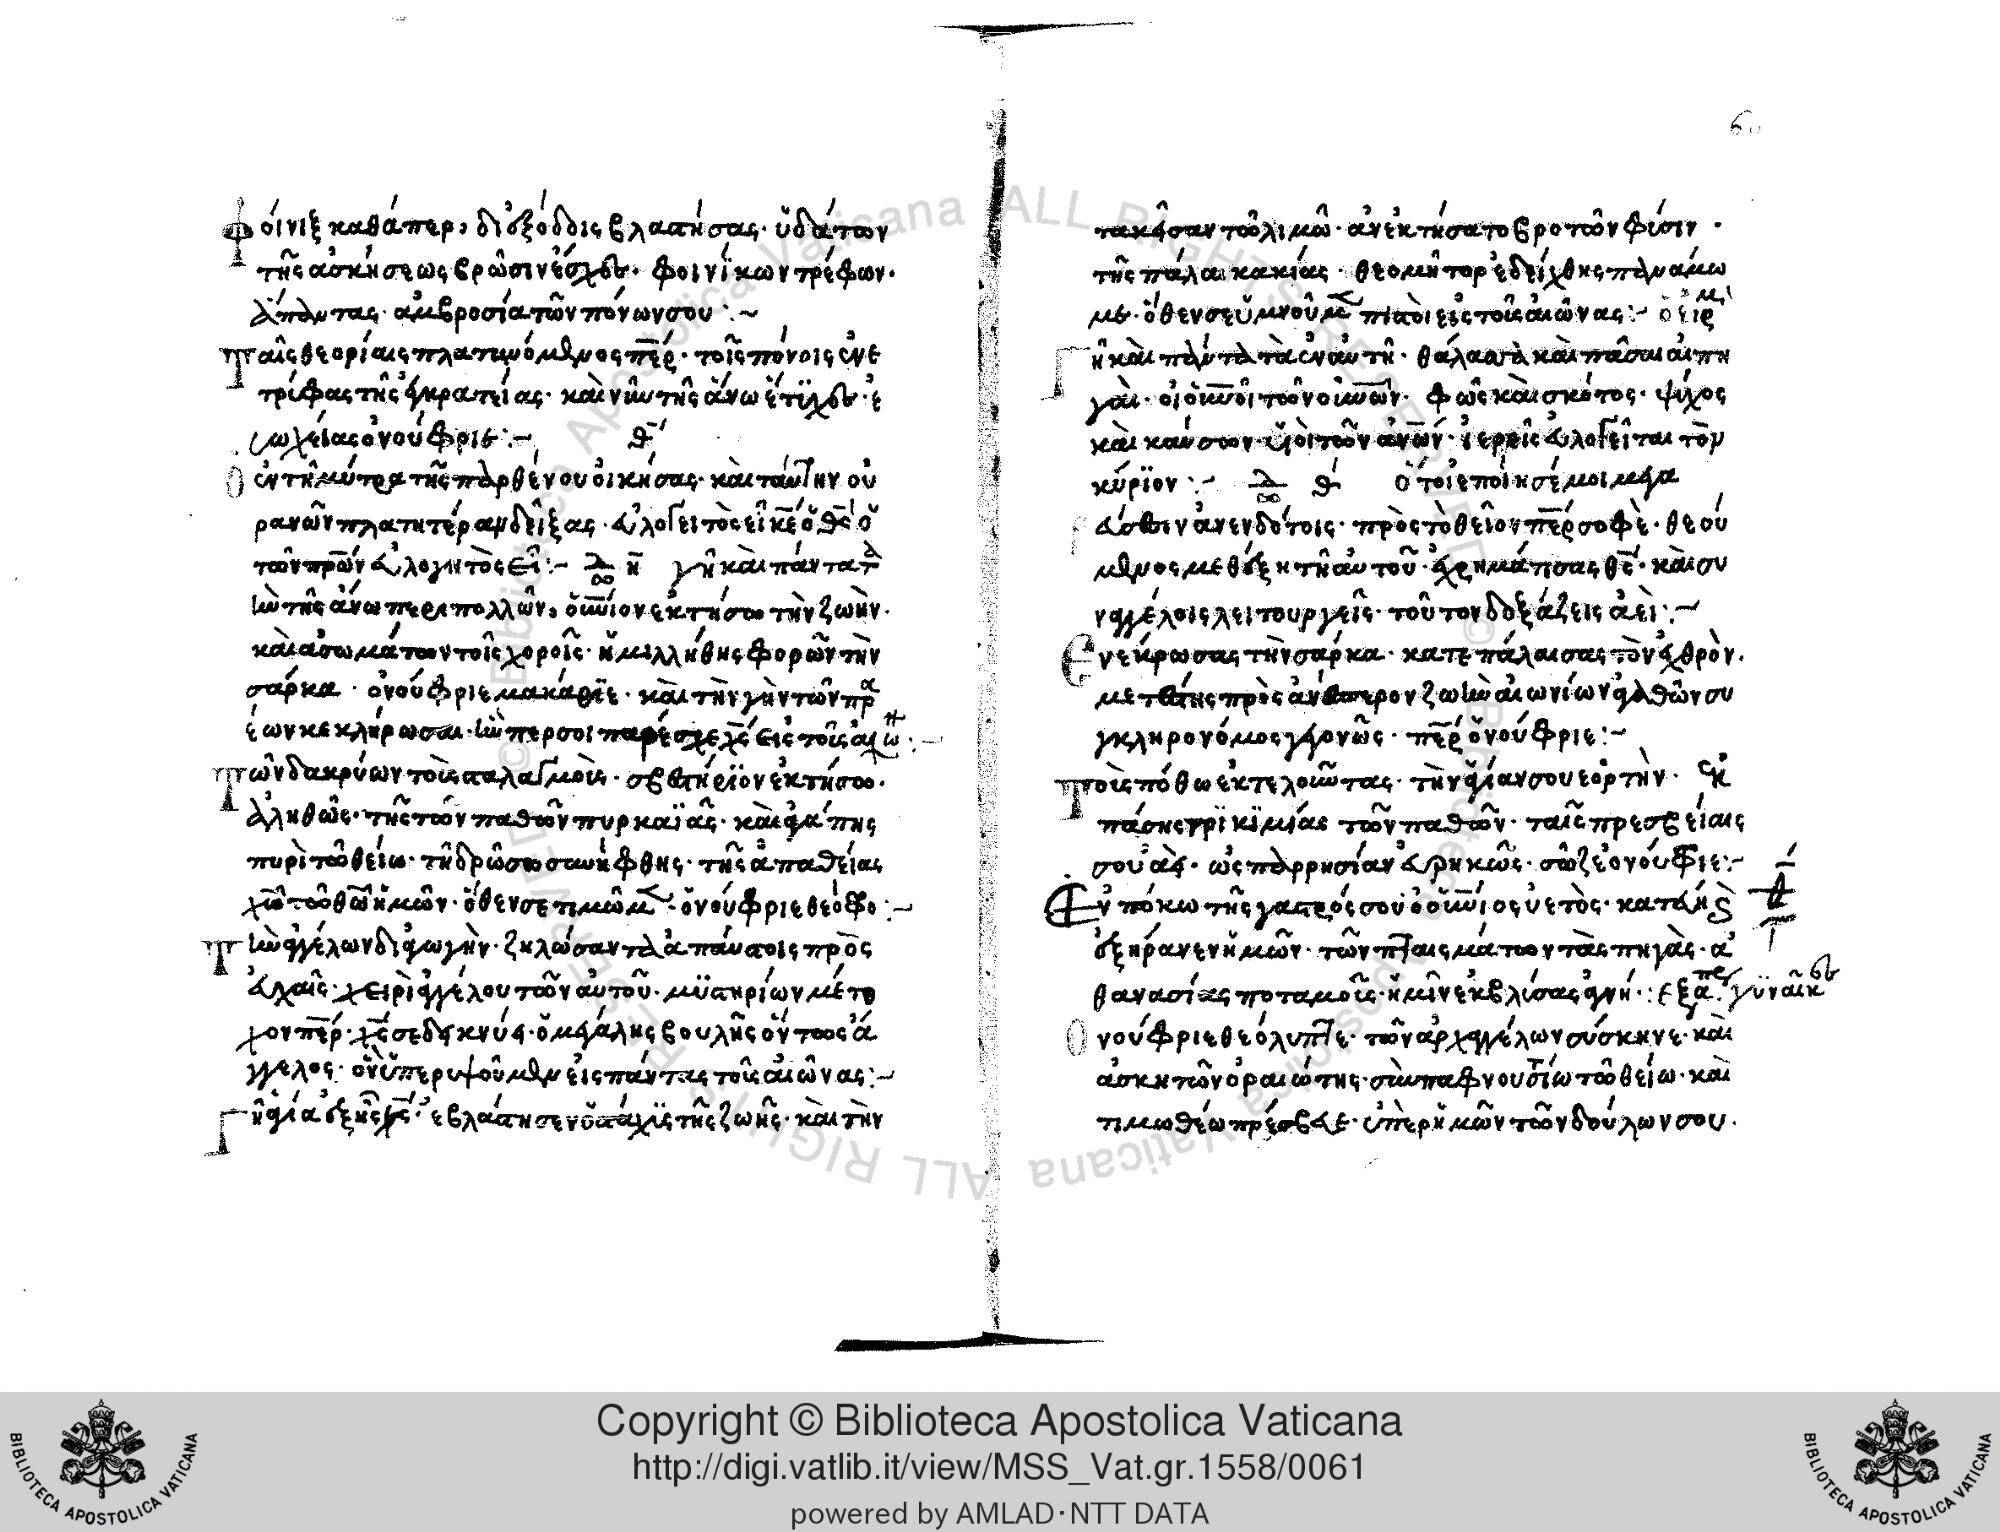 Φοίνιξ καθάπερ, διεξόδοις βλαστήσας· ὑδάτων
τῆς ἀσκήσεως βρῶσιν ἔσχες· φοινίκων τρέφων·
ἅπαντας· ἀμβροσία τῶν πόνων σου :~
Ταῖς θεορίαις πλατυνόμενος περ· τοῖς πόνοις ἐνε
τρύφας τῆς ἐγκρατείας· καὶ νῦν τῆς ἄνω ἔτυχες· ε
Ὀνούφριε :~ θ´
Ὁ ἐν τῇ μήτρα τῆς παρθένου οἰκήσας· καὶ ταύτην οὐ
ρανῶν πλατητέραν δείξας· εὐλογειτὸς εἶ κε ὁ θς ὁ
τῶν πρων εὐλογητὸς εῖ :~ η γῆ καὶ πάντα τ
τῆς ἄνω περιπολλῶν, οὐνιον ἐκτήσω τὴν ζωὴν·
καὶ ἀσωμάτων τοῖς χοροῖς· ἡμιλλήθης φορῶν τὴν
σάρκα· ὀνούφριε μακάριε· καὶ τὴν γὴν τῶν πρα
έων κεκλήρωσαι· ὕπερ σοι παρέσχε χς εἰς τοῦς αἰω :~
Τῶν δακρύων τοῖς σταλαγμοῖς· σβεστήριον ἐκτήσω·
ἀληθῶς· τῆς τῶν παθῶν πυρκαϊᾶς· καὶ ἀγάπης
πυρὶ τῶ θείω· τῆ δρώσω συνήφθης· τῆς ἀπαθείας
χω τῶ θω ἡμῶν· ὅθεν σε τιμῶμ· ὀνούφριε θεόφο :~
Τὴν ἀγγέλων διαγωγὴν· ζηλώσαντα ἀπαύστοις πρὸς
εὐχαῖς· χειρὶ ἀγγέλου τῶν αὐτοῦ· μυστηρίων μέτο
χον περ· χς σε δεικνύει· ὁ μεγάλης βουλῆς ὄντως ἄ
γγελος· ὃν ὑπερυψοῦμεν εἰς πάντας τοῦς αἰῶνας :~
Γῆ ἁγία ἐξ ἧς· ἐβλάστησεν ὁ στάχυς τῆς ζωῆς· καὶ τὴν
60
τακεῖσαν τῶ λιμῶ· ἀνεκτήσατο βροτῶν φύσιν·
τῆς πάλαι κακίας· θεομῆτορ ἐδείχθης παναμω
με· ὅθεν σε ὑμνοῦμ πιστοὶ εἰς τοῦς αἰῶνας :~ ὁ εἱρμ
Γῆ καὶ πάντα τὰ ἐν αὐτῆ· θάλασσα καὶ πᾶσαι αἱ πη
γαὶ· οἱ ουνοὶ τῶν ουνων· φῶς καὶ σκότος· ψύχος
καὶ καύσων· υἱοὶ τῶν ανων· ἱερεῖς εὐλογεῖται τὸν
κύριον :~ θ´ Ὅτι ἐποίησέ μοι μεγα
νεύσεσιν ἀνενδότοις· πρὸς τὸ θεῖον περ σοφὲ· θεού
μενος μεθέξει τῆ αὐτοῦ· ἐχρημάτισας θς· καὶ συ
ναγγέλοις λειτουργεῖς· τοῦτον δοξάζεις ἀεὶ :~
Ενέκρωσας τὴν σάρκα· κατεπάλαισας τὸν ἐχθρὸν·
μετέστης πρὸς ἀνέσπερον ζωὴν αἰωνίων ἀγαθῶν συ
γκληρονόμος γεγονῶς· περ ὀνούφριε :~
Τοῖς πόθω ἐκτελοῦντας· τὴν ἁγίαν σου ἑορτὴν· ἐκ
πάσης τρικυμίας τῶν παθῶν· ταῖς πρεσβείαις
σου ἀεὶ· ὡς παρρησίαν εὑρηκῶς· σῶζε ὀνούφριε :~
Ἐν πόκω τῆς γαστρός σου ὁ οὐνιος ὑετὸς· κατελη
ἐξήρανεν ἡμῶν· τῶν πταισμάτων τὰς πηγὰς· ἀ
θανασίας ποταμοῖς· ἡμῖν ἐκβλίσας ἁγνή· : εξαπ γυναικ
Ὀνούφριε θεόληπτε· τῶν ἀρχαγγέλων σύσκηνε· καὶ
ἀσκητῶν ὁραιώτης· σὺν παφνουτίω τῶ θείω· καὶ
τιμωθέω πρέσβευε· ὑπὲρ ἡμῶν τῶν δούλων σου·
Copyright © Biblioteca Apostolica Vaticana
http://digi.vatlib.it/view/MSS_Vat.gr.1558/0061
powered by AMLAD·NTT DATA
BIBLIOTECA APOSTOLICA VATICANA
BIBLIOTECA APOSTOLICA VATICANA